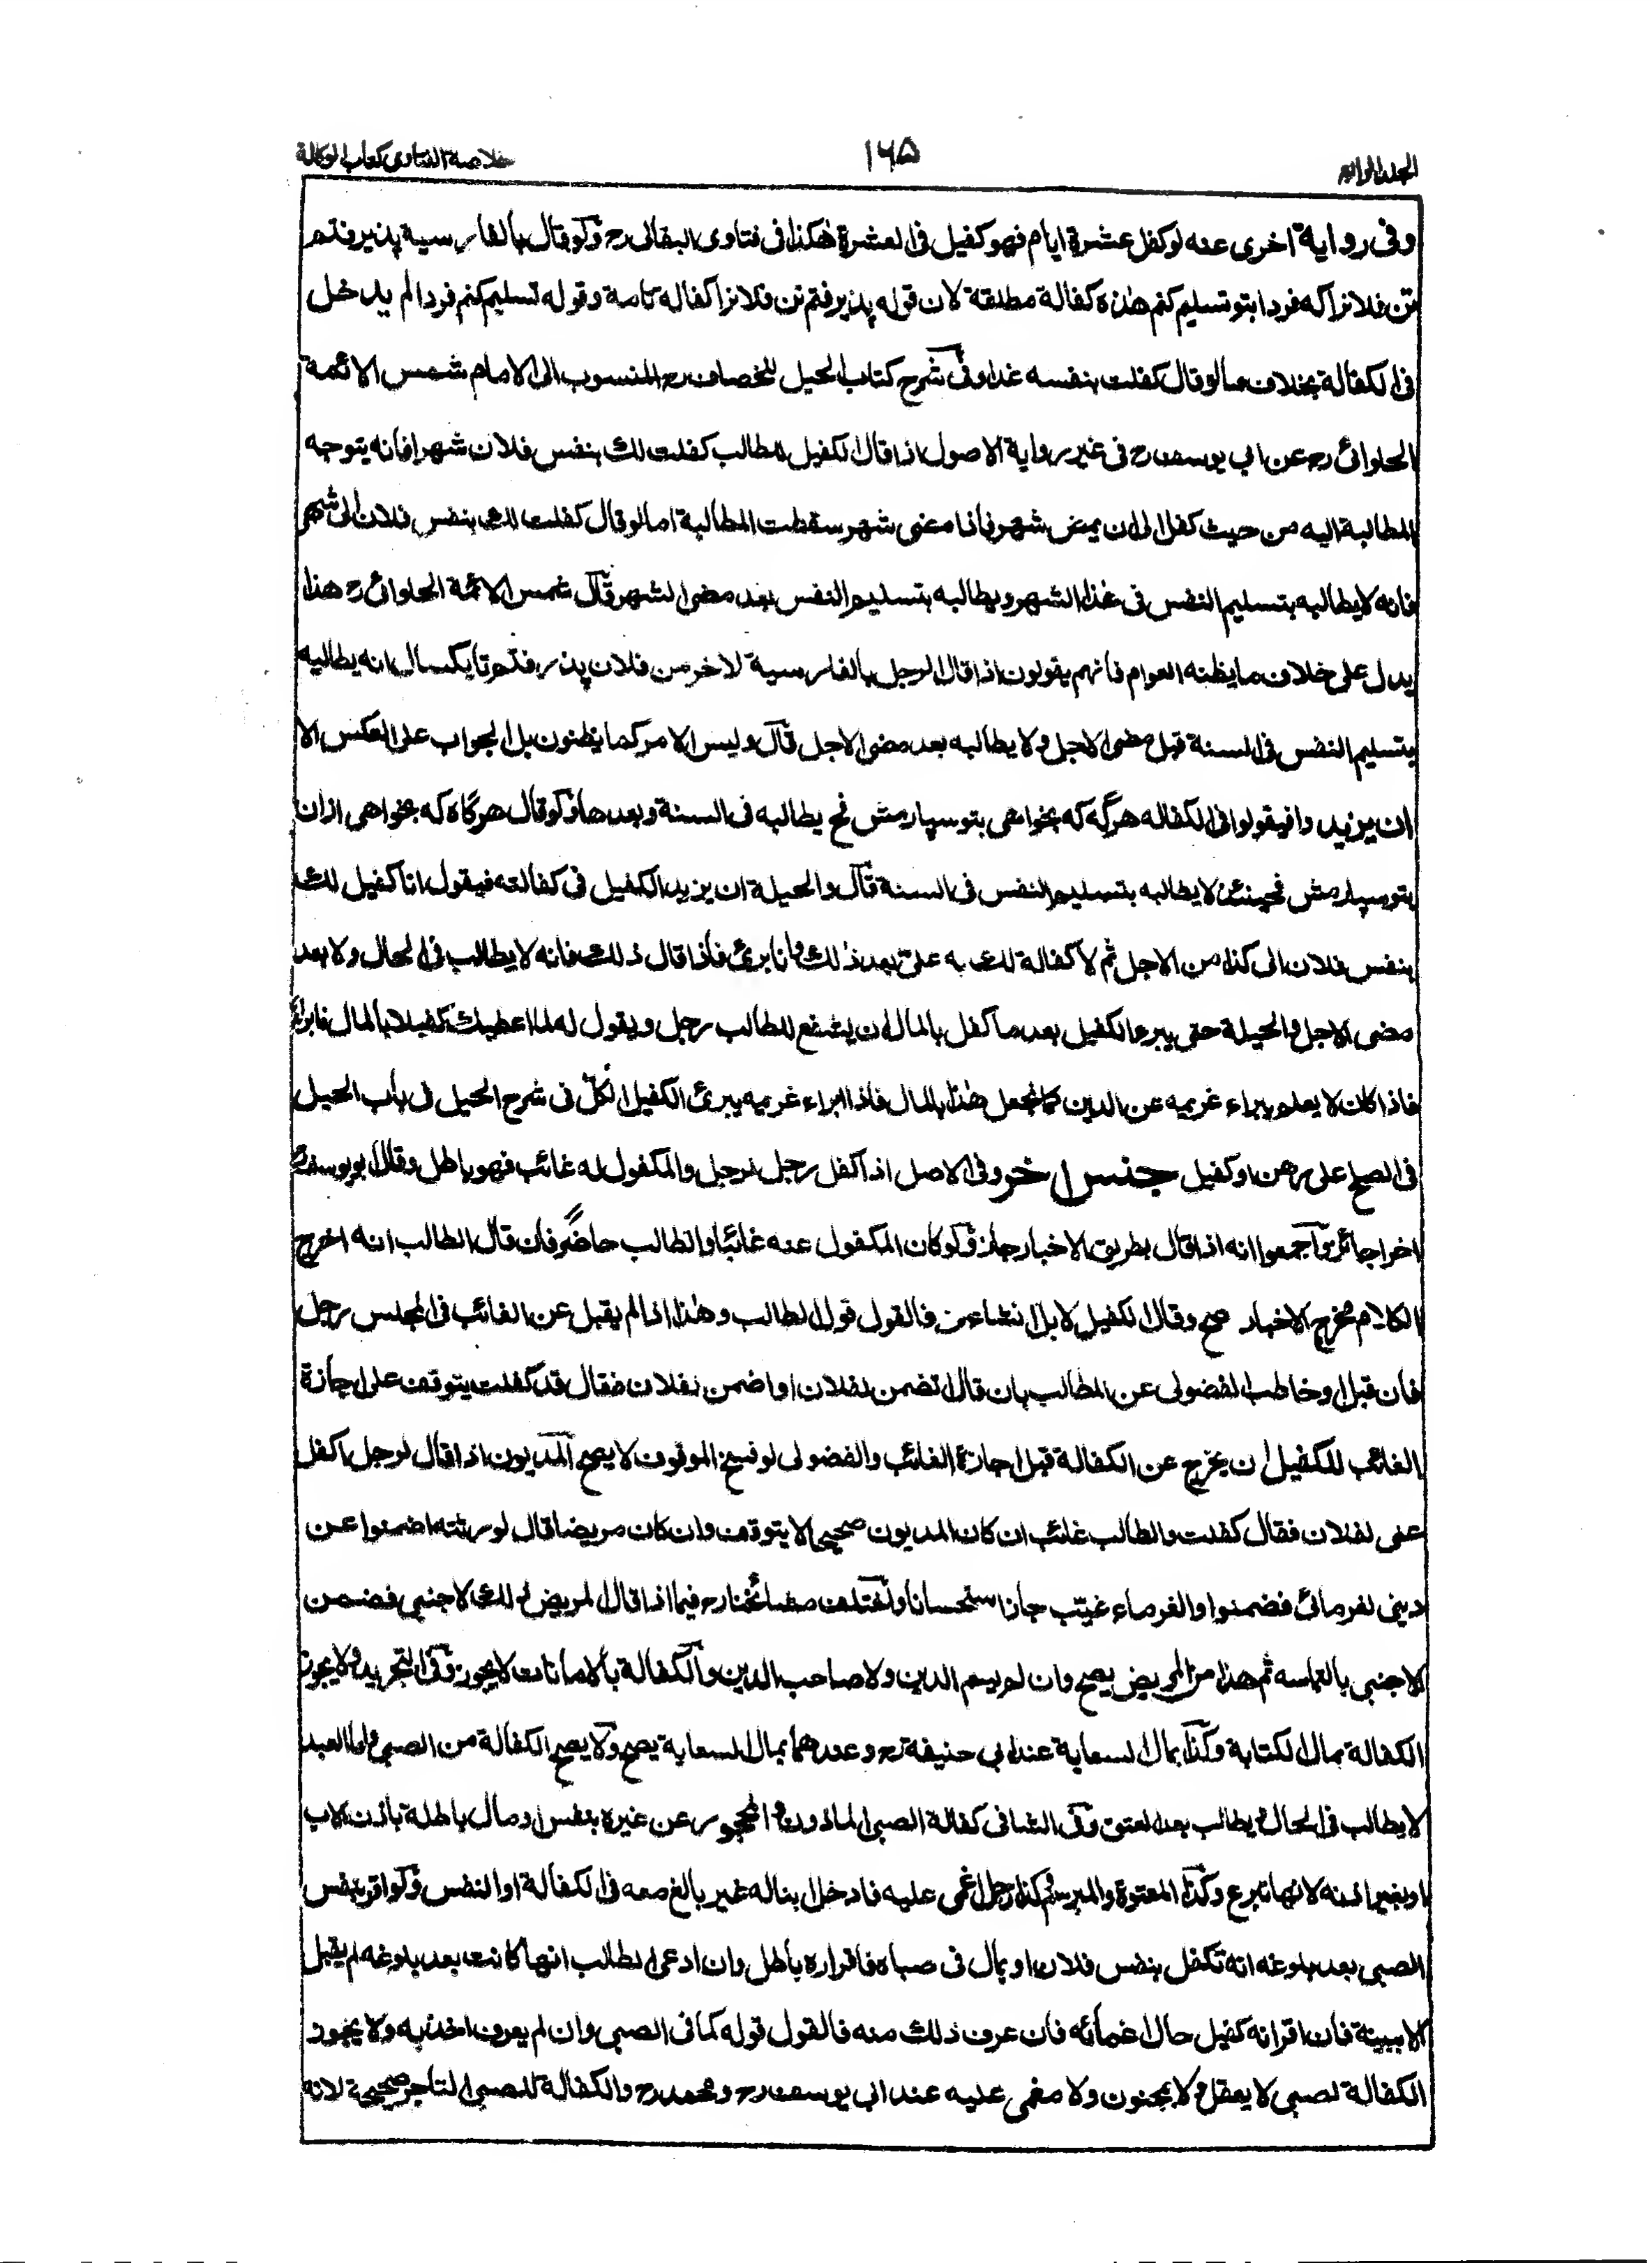 الجلد الرابع ١٦٥ خلاصة الفتاوى كتاب الوكالة
وفى رواية اخرى عنه لو كفل عشرة ايام فهو كفيل فى العشرة هكذا فى فتاوى البقالى رح ولو قال بالفارسية پذيرفتم
تن فلانرا كه فردا بتو تسليم كنم هذه كفالة مطلقة لان قوله پذيرفتم تن فلانرا كفالة تامة وقوله تسليم كنم فردا لم يدخل
فى الكفالة بخلاف ما لو قال كفلت بنفسه غدا وفى شرح كتاب الحيل للخصاف رح المنسوب الى الامام شمس الائمة
الحلوائى رح عن ابى يوسف رح فى غير رواية الاصول اذا قال الكفيل للطالب كفلت لك بنفس فلان شهرا فانه يتوجه
المطالبة اليه من حيث كفل الى ان يمضى شهر فاذا مضى شهر سقطت المطالبة اما لو قال كفلت لك بنفس فلان الى شهر
فانه لا يطالبه بتسليم النفس فى هذا الشهر ويطالبه بتسليم النفس بعد مضى الشهر قال شمس الائمة الحلوائى رح هذا
يدل على خلاف ما يظنه العوام فانهم يقولون اذا قال الرجل بالفارسية لاخر من فلان پذيرفتم تا يكسال انه يطالبه
بتسليم النفس فى السنة قبل مضى الاجل ولا يطالبه بعد مضى الاجل قال وليس الامر كما يظنون بل الجواب على العكس الا
ان يزيدوا فيقولوا فى الكفالة هرگه كه بخواهى بتو سپارمش فح يطالبه فى السنة وبعدها ولو قال هرگاه كه بخواهى ازان
بتو سپارمش فحينئذ لا يطالبه بتسليم النفس فى السنة قال والحيلة ان يزيد الكفيل فى كفالته فيقول انا كفيل لك
بنفس فلان الى كذا من الاجل ثم لا كفالة لك به على بعد ذلك وانا برئ فاذا قال ذلك فانه لا يطالب فى الحال ولا بعد
مضى الاجل والحيلة حتى يبرء الكفيل بعد ما كفل بالمال ان يشفع للطالب رجل ويقول له لما اعطيك كفيلا بالمال فابرأ
فاذا كان لا يعلم يبراء غريمه عن الدين كما نجعل هذا بالمال فاذا ابراء غريمه يبرئ الكفيل الكل فى شرح الحيل فى باب الحيل
فى الصلح على رهن او كفيل جنس اخر وفى الاصل اذا كفل رجل لرجل والمكفول له غائب فهو باطل وقال ابو يوسف رح
اخرا جائز واجمعوا انه اذا قال بطريق الاخبار جاز ولو كان المكفول عنه غائبا والطالب حاضر فان قال الطالب انه اخرج
الكلام مخرج الاخبار صح وقال الكفيل لا بل انشاء فالقول قول الطالب وهذا اذا لم يقبل عن الغائب فى المجلس رجل
فان قبل او خاطب الفضولى عن الطالب بان قال اتضمن لفلان او اضمن لفلان فقال قد كفلت يتوقف على اجازة
الغائب للكفيل ان يخرج عن الكفالة قبل اجازة الغائب والفضولى لو فسخ الموقوف لا يصح المديون اذا قال لرجل اكفل
عنى لفلان فقال كفلت والطالب غائب ان كان المديون صحيحا لا يتوقف وان كان مريضا قال لورثته اضمنوا عن
دينى لغرمائى فضمنوا والغرماء غيب جاز استحسانا واختلف مشائخنا رح فيما اذا قال المريض ذلك لاجنبى فضمن
الاجنبى بالتماسه ثم هذا من المريض يصح وان لم يسم الدين ولا صاحب الدين والكفالة بالامانات لا يجوز وفى التجريد ولا يجوز
الكفالة بمال الكتابة وكذا بمال السعاية عند ابى حنيفة رح وعندهما بمال السعاية يصح ولا يصح الكفالة من الصبى واما العبد
لا يطالب فى الحال ويطالب بعد العتق وفى الشافى كفالة الصبى الماذون والمحجور عن غيره بنفس او مال باطلة باذن الاب
او بغير اذنه لانها تبرع وكذا المعتوه والمبرسم كذا رجل اغمى عليه فادخل ابنا له غير بالغ معه فى الكفالة او النفس ولو اقر بنفس
الصبى بعد بلوغه انه تكفل بنفس فلان او بمال فى صباه فاقراره باطل وان ادعى الطالب انها كانت بعد بلوغه لم يقبل
الا ببينة فان اقر انه كفيل حال اغمائه فان عرف ذلك منه فالقول قوله كما فى الصبى وان لم يعرف اخذ به ولا يجوز
الكفالة لصبى لا يعقل ولا بمجنون ولا مغمى عليه عند ابى يوسف رح ومحمد رح والكفالة للصبى التاجر صحيحة لانه